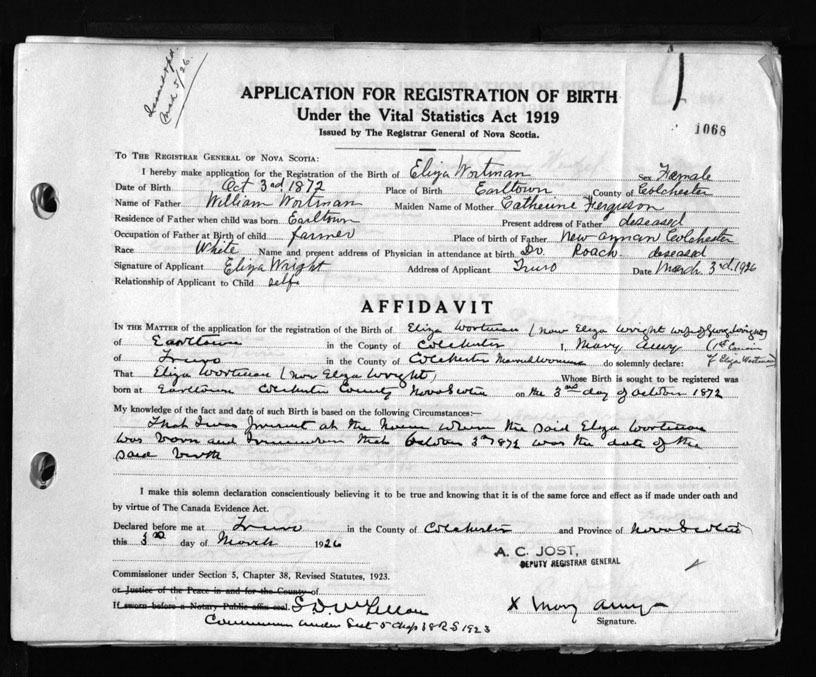 Mch 5/26
APPLICATION FOR REGISTRATION OF BIRTH
Under the Vital Statistics Act 1919
Issued by The Registrar General of Nova Scotia.
1068
To The Registrar General of Nova Scotia:
I hereby make application for the Registration of the Birth of Eliza Wortman Sex Female
Date of Birth Oct 3rd 1872 Place of Birth Earltown County of Colchester
Name of Father William Wortman Maiden Name of Mother Catherine Ferguson
Residence of Father when child was born Earltown Present address of Father deseased
Occupation of Father at Birth of child farmer Place of birth of Father New annan Colchester
Race White Name and present address of Physician in attendance at birth Dr Roach deseased
Signature of Applicant Eliza Wright Address of Applicant Truro Date March 3rd 1926
Relationship of Applicant to Child self
AFFIDAVIT
In the Matter of the application for the registration of the Birth of Eliza Wortman (now Eliza Wright wife of George Wright)
of Earltown in the County of Colchester I, Mary (1st Cousin
of Truro in the County of Colchester Married Woman do solemnly declare: of Eliza Wortman)
That Eliza Wortman (now Eliza Wright) Whose Birth is sought to be registered was
born at Earltown Colchester County Nova Scotia on the 3rd day of October 1872
My knowledge of the fact and date of such Birth is based on the following Circumstances:—
That I was present at the house where the said Eliza Wortman
was born and I remember that October 3rd 1872 was the date of the
said birth
I make this solemn declaration conscientiously believing it to be true and knowing that it is of the same force and effect as if made under oath and
by virtue of The Canada Evidence Act.
Declared before me at Truro in the County of Colchester and Province of Nova Scotia
this 3rd day of March 1926
A. C. JOST,
DEPUTY REGISTRAR GENERAL
Commissioner under Section 5, Chapter 38, Revised Statutes, 1923.
or Justice of the Peace in and for the County of
If sworn before a Notary Public affix seal.
X Mary
Signature.
Commissioner under Sect 5 Chap 38 R S 1923